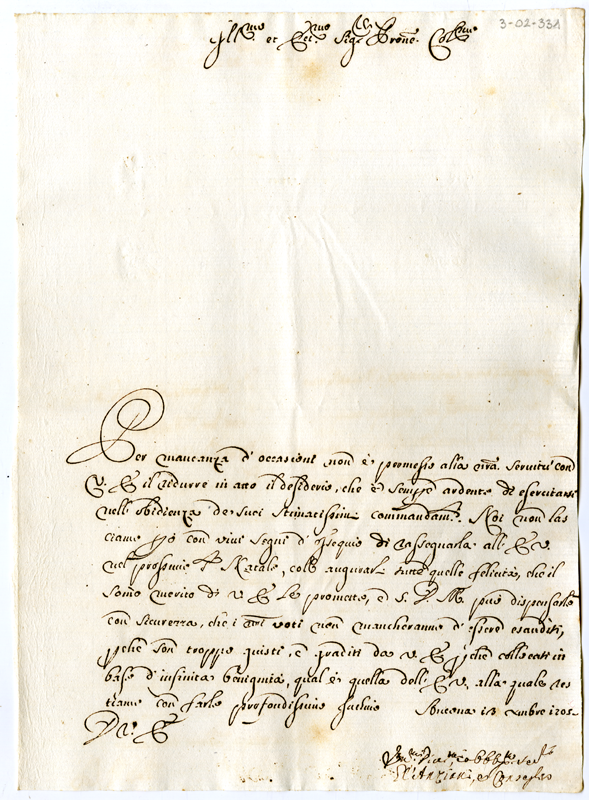 3-02-331
Ill.mo et Ecc.mo Sig.r Prone Col.mo
Per mancanza d'occasioni non è permesso alla nrã. servitù con
V. E. il ridurre in atto il desiderio, che è sempre ardente di esercitarsi
nell'obidienza de suoi stimatissimi commandam.ti. Noi non las
ciamo però con vivi segni d'ossequio di rassegnarla all'E. V.
nel prossimo S. Natale, coll'augurarle tutte quelle felicità, che il
sommo merito di V. E. le promette, e S. D. M. può dispensarle
con sicurezza, che i nrĩ voti non mancheranno d'essere esauditi,
perche son troppo giusti, e graditi da V. E. perche collocati in
base d'infinita benignità, qual'è quella dell'E. V. alla quale res
tiamo con farle profondissimo inchino
Di V. E.
Gl'Anziani, e Conseglio